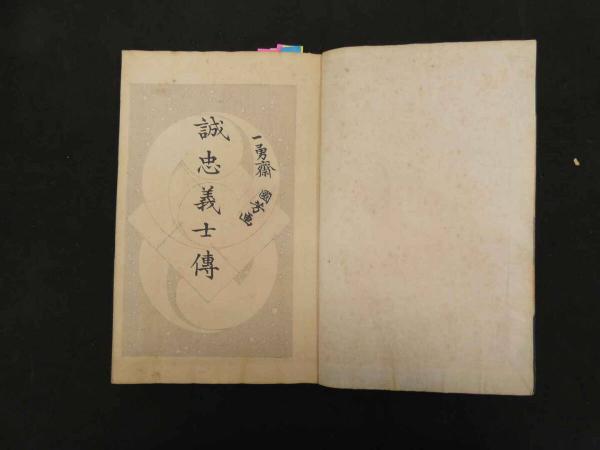 一勇齋 國芳画
誠忠義士傳